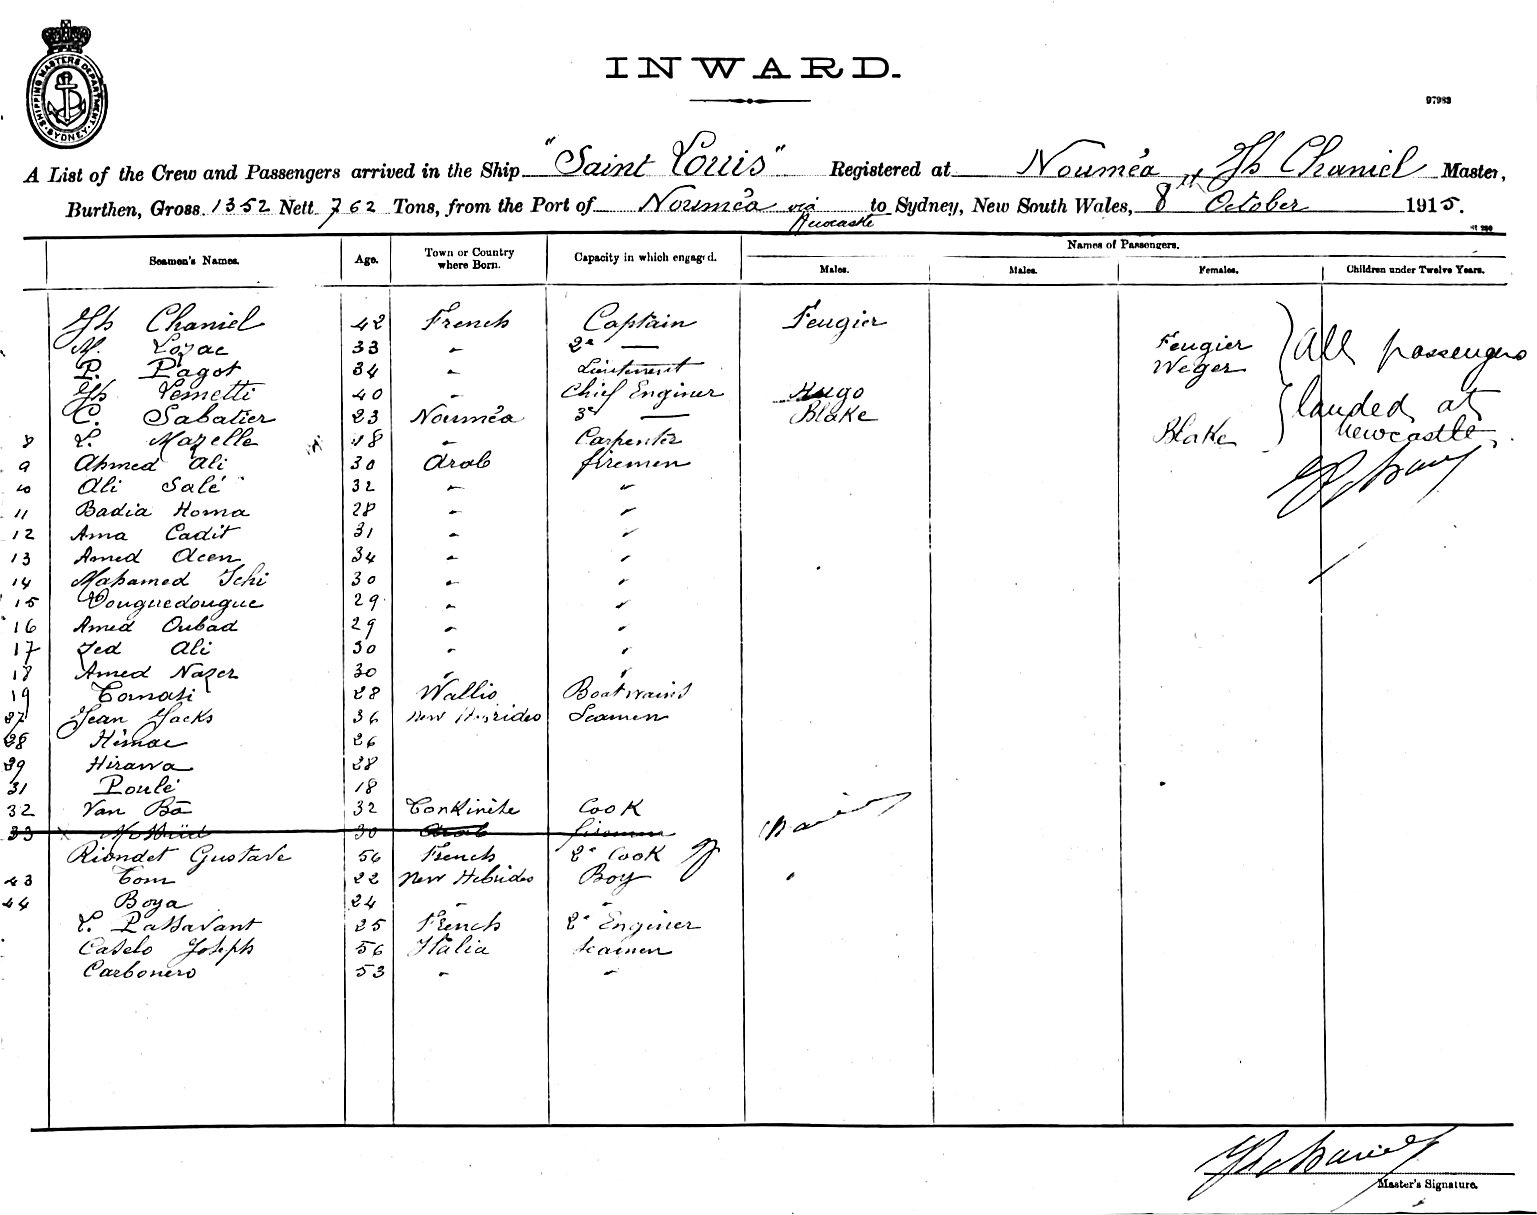 SHIPPING MASTERS DEPARTMENT SYDNEY
INWARD.
97983
A List of the Crew and Passengers arrived in the Ship "Saint Louis" Registered at Nouméa, Jh Chaniel Master,
Burthen, Gross 1352 Nett 762 Tons, from the Port of Nouméa via Newcastle to Sydney, New South Wales, 8 October 1915.
Seamen's Names. Age. Town or Country where Born. Capacity in which engaged. Names of Passengers.
Males. Males. Females. Children under Twelve Years.
Jh Chaniel 42 French Captain Feugier
M. Lozac 33 " 2e — Feugier All passengers
P. Pagot 34 " Lieutenant Weger
Jh Lemetti 40 " Chief Enginer Hugo
C. Sabatier 23 Nouméa 3e — Blake landed at
8 L. Mazelle 18 " Carpenter Blake Newcastle
9 Ahmed Ali 30 Arab firemen
10 Ali Salé 32 " "
11 Badia Homa 28 " "
12 Ama Cadit 31 " "
13 Amed Acen 34 " "
14 Mohamed Ichi 30 " "
15 Douguedougue 29 " "
16 Amed Oubad 29 " "
17 Zed Ali 30 " "
18 Amed Nazer 30 " "
19 Tomasi 28 Wallis Boatswains
27 Jean Jacks 36 New Hebrides Seamen
28 Himae 26
29 Hirawa 28
31 Poulé 18
32 Van Ba 32 Tonkinite Cook
33 30 Arab firemen
Riondet Gustave 56 French 2e Cook
43 Tom 22 New Hebrides Boy
44 Boya 24 " "
L. Passavant 25 French 2e Enginer
Caselo Joseph 56 Italia seamen
Carbonero 53 " "
Master's Signature.